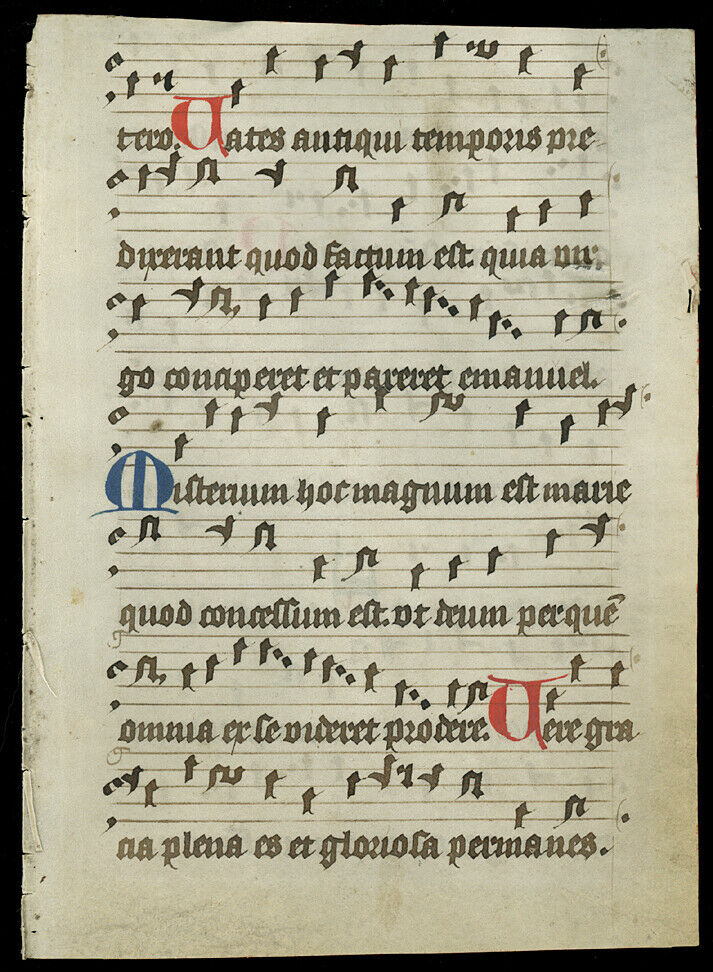 tero. Uates antiqui temporis pre
dixerant quod factum est. quia vir
go conciperet et pareret emanuel.
Misterium hoc magnum est marie
quod concessum est. vt deum per quē
omnia ex se videret prodere. Uere gra
cia plena es et gloriosa permanes.